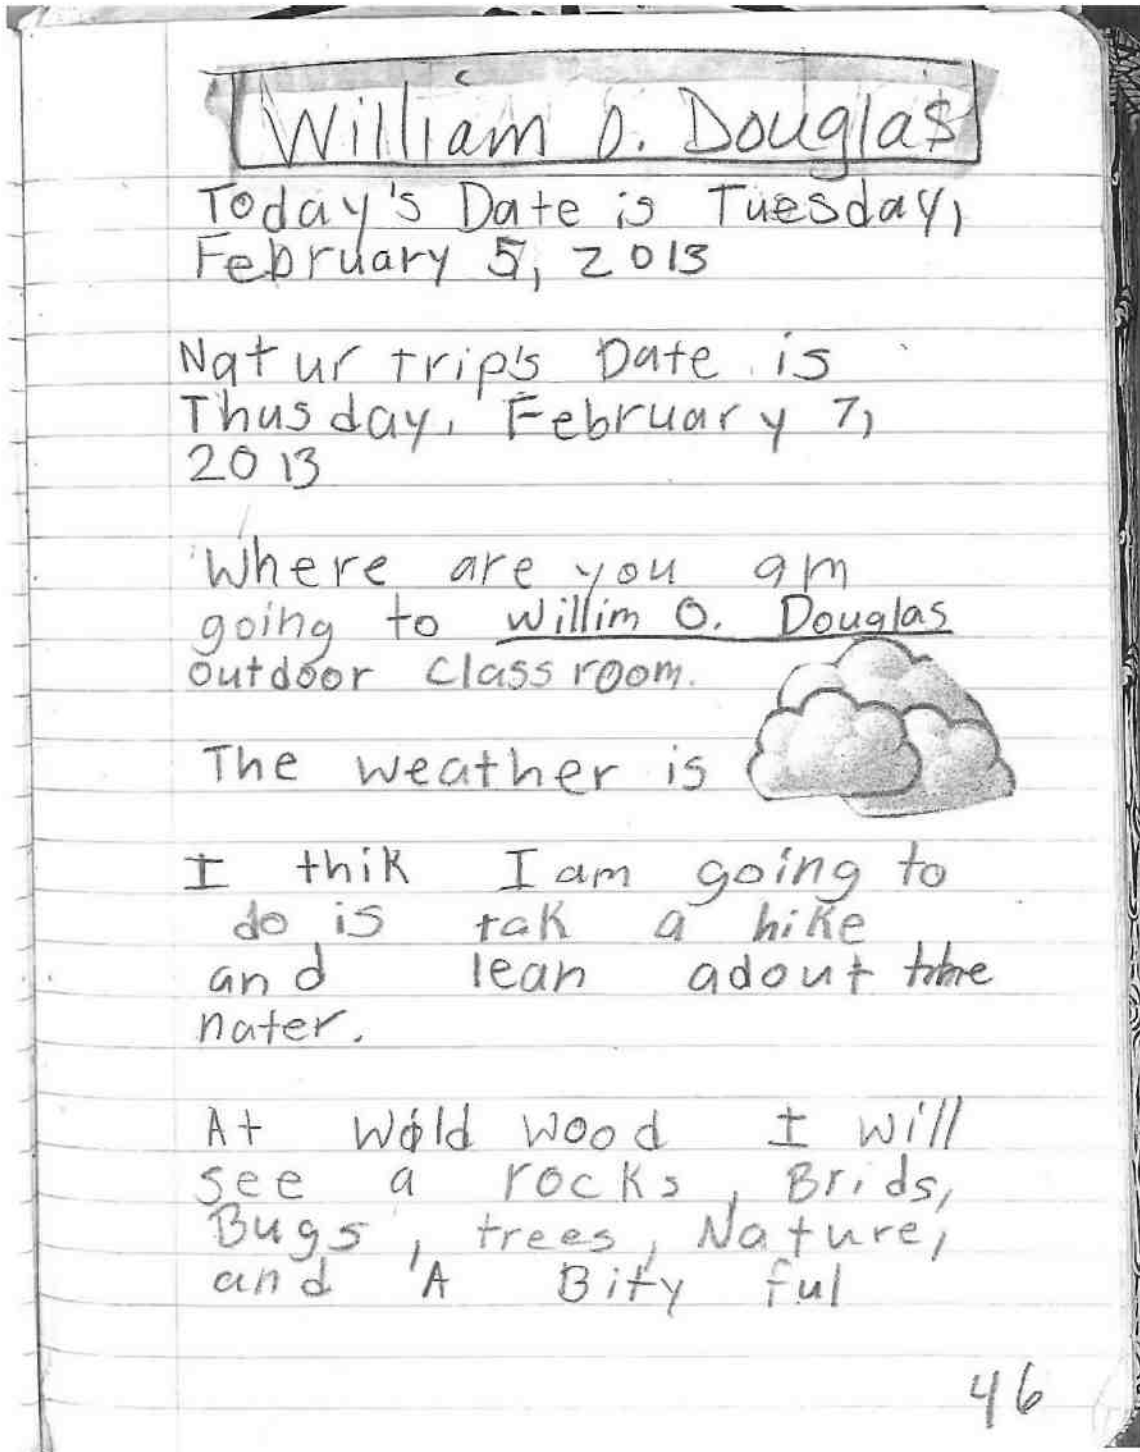 William O. Douglas
Today's Date is Tuesday,
February 5, 2013
Natur trip's Date is
Thusday, February 7,
2013
Where are you am
going to Willim O. Douglas
outdoor class room.
The weather is
I thik I am going to
do is tak a hike
and lean adout the
nater.
At Wold wood I will
see a rocks, Brids,
Bugs, trees, Nature,
and A Bity ful
46